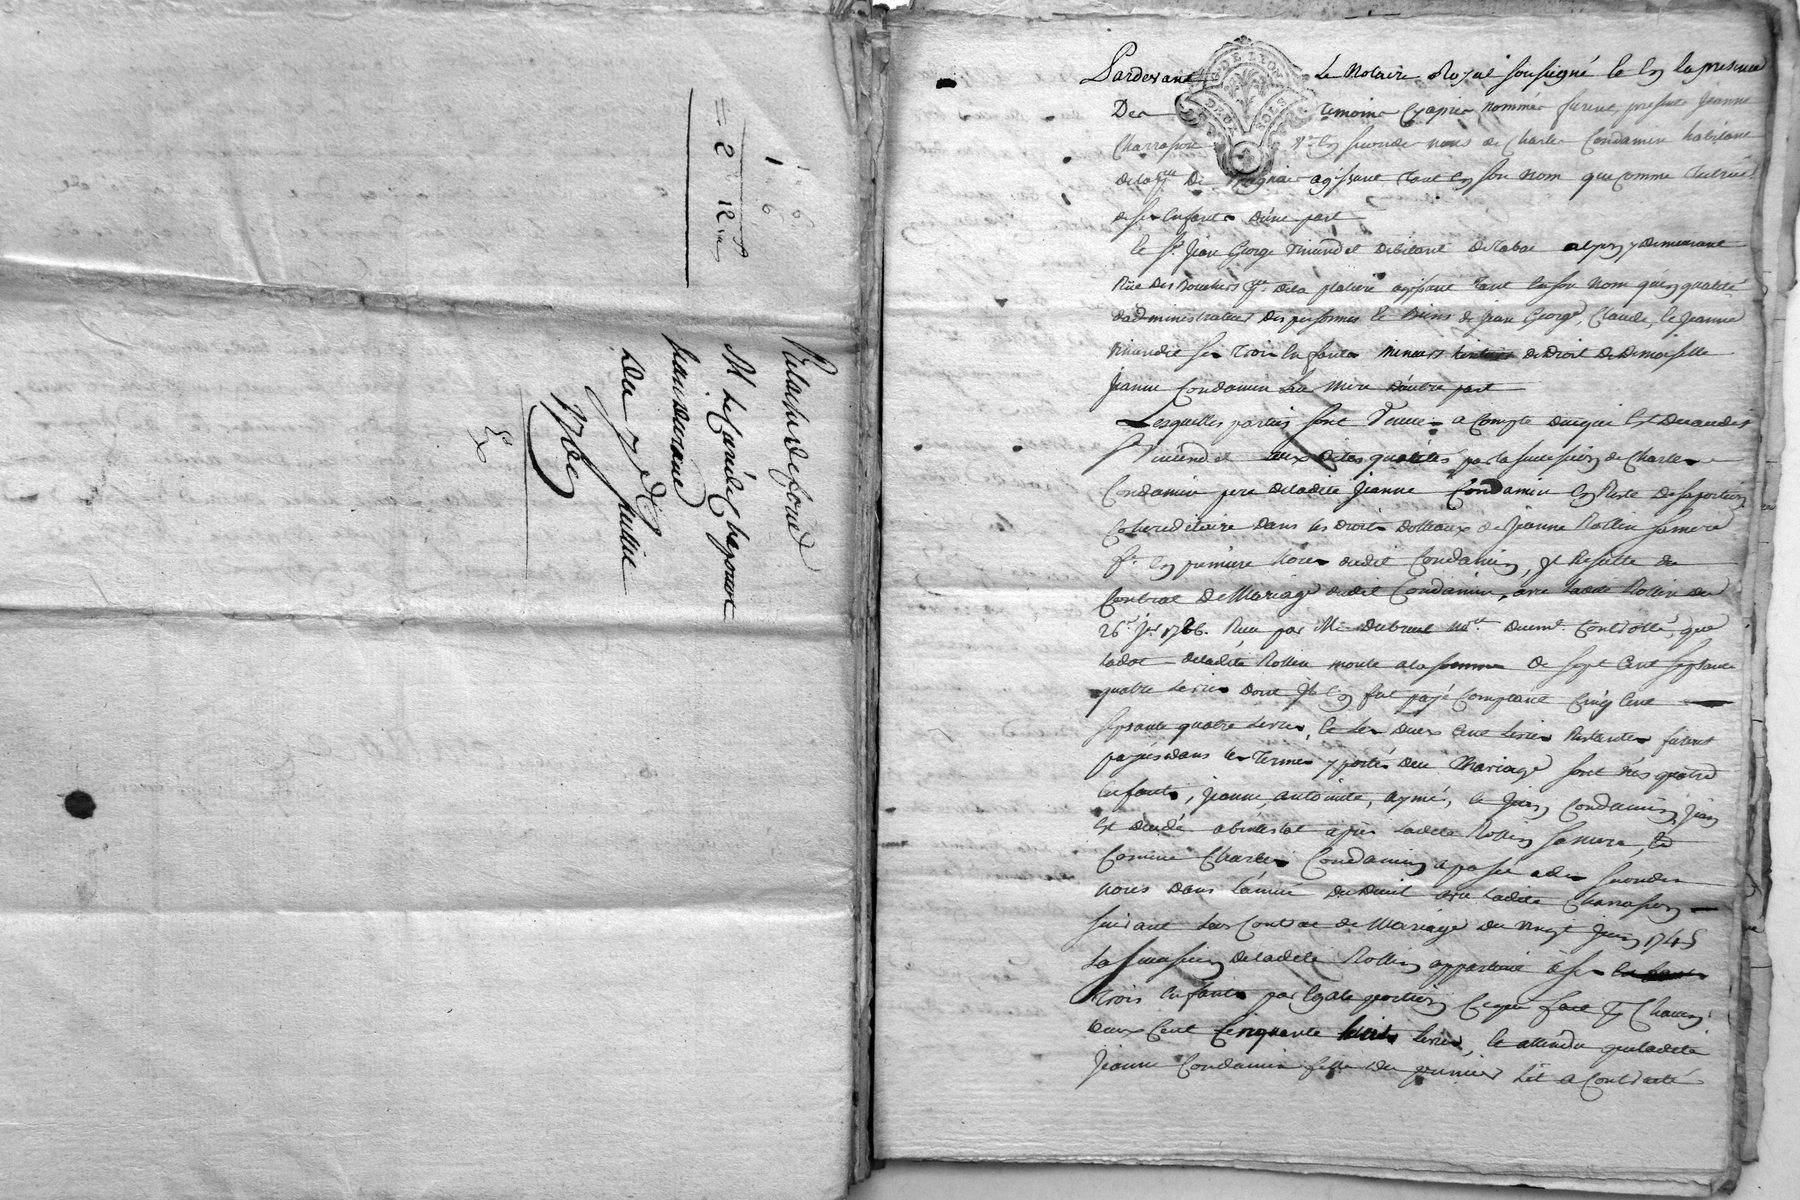 1
= 2 12
M le Curé de Chaponost
Du 7 Juillet
1761
Ex
G. DE LYON
DEUX SOLS
Pardevant Le Notaire Royal soussigné et en la presence
Des temoins cyapres nommés furent presents Jeanne
Charrasson en secondes noces de Charles Condamin habitante
de la agissant tant en son nom que comme tutrice
de ses enfants d'une part
le Sr Jean George debitant de tabac a lyon y demeurant
Rue des Bouchers psse de la platiere agissant tant en son nom qu'en qualité
d'administrateur des personnes et Biens de Jean George, Claude, et Jeanne
ses trois enfants mineurs de Droit de Demoiselle
Jeanne Condamin leur mere d'autre part
Lesquelles parties sont venues a compte de ce qui est du audit
aux dites qualités par la succession de Charles
Condamin pere de ladite Jeanne Condamin en Reste de sa portion
cohereditaire dans les droits dotaux de Jeanne Rollin sa mere
fe en premiere noces dudit Condamin, Il Resulte du
Contrat de Mariage dudit Condamin, avec ladite Rollin du
26 Recu par Me Dubreuil nore Duemt Controllé, que
la dot de ladite Rollin monte a la somme de sept cent septante
quatre livres dont Il en fut payé comptant cinq cent
septante quatre livres, et les deux cent livres Restantes furent
payées dans les termes y portés du Mariage sont nés quatre
enfants, Jeanne, antoinette, aymé, et Jean Condamin, Jean
est decedé abintestat apres ladite Rollin sa mere, et
Comme Charles Condamin a passé a des secondes
noces dans l'année du deuil avec ladite Charrasson
suivant leur Contrat de Mariage du vingt Juin 1745
La succession de ladite Rollin appartient a ses
trois enfants par egale portion ce qui fait a Chacun
deux cent cinquante huit livres, et attendu que ladite
Jeanne Condamin fille du premier lit a contracté